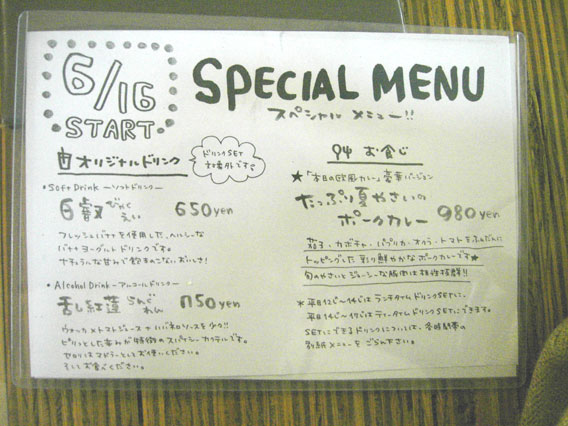 6/16
START
SPECIAL MENU
スペシャル メニュー!!
オリジナルドリンク
ドリンクSET
対象外です
• Soft Drink ―ソフトドリンク―
白叡 びゃくえい 650yen
フレッシュバナナを使用した、ヘルシーな
バナナヨーグルトドリンクです。
ナチュラルな甘みで飽きのこないおいしさ!
• Alcohol Drink ―アルコールドリンク―
乱紅蓮 らんぐれん 750yen
ウォッカ×トマトジュース
ピリッとした辛みが特徴のスパイシーカクテルです。
セロリはマドラーとしてお使いください。
そしてお食べください。
94 お食じ
★「本日の欧風カレー」豪華バージョン
たっぷり夏やさいの
ポークカレー 980yen
茄子・カボチャ・パプリカ・オクラ・トマトをふんだんに
トッピングした彩り鮮やかなポークカレーです★
旬のやさいとジューシーな豚肉は相性抜群!!
* 平日12じ〜14じはランチタイムドリンクSETに、
平日14じ〜17じはティータイムドリンクSETにできます。
SETにできるドリンクについては、各時間帯の
別紙メニューをごらん下さい。